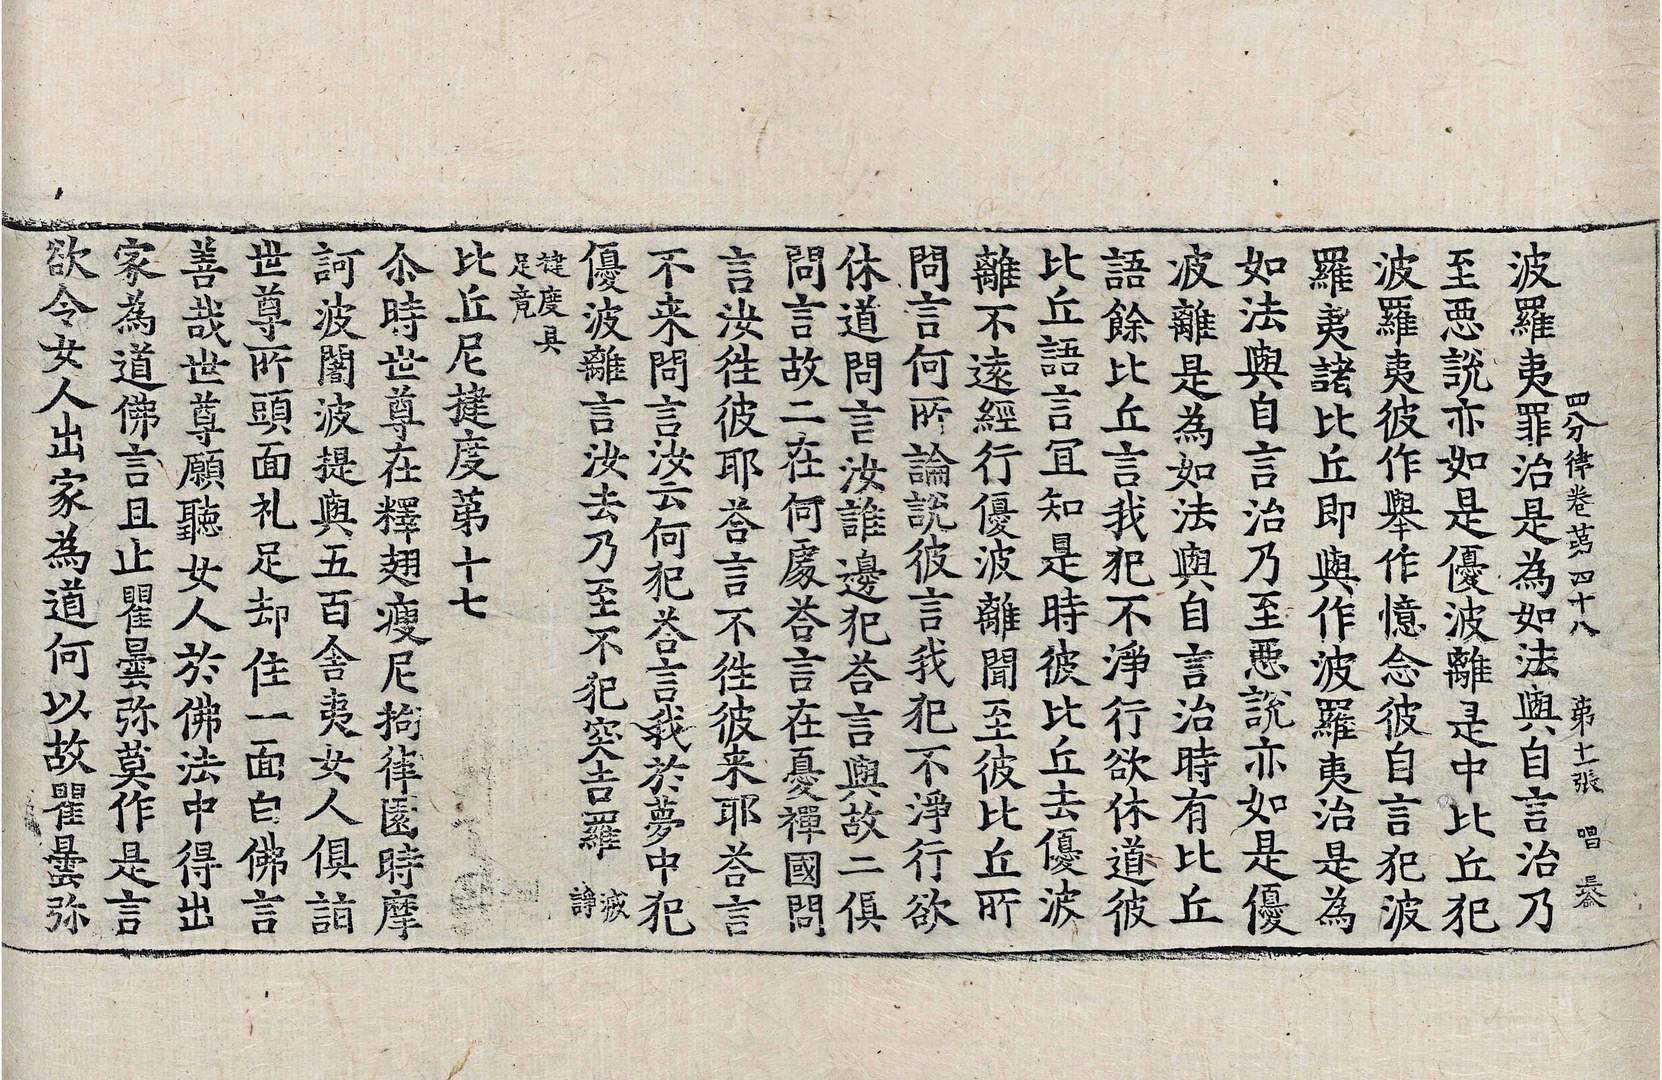 四分律卷第四十八 第十一張 唱
波羅夷罪治是為如法與自言治乃
至惡說亦如是優波離是中比丘犯
波羅夷彼作舉作憶念彼自言犯波
羅夷諸比丘即與作波羅夷治是為
如法與自言治乃至惡說亦如是優
波離是為如法與自言治時有比丘
語餘比丘言我犯不淨行欲休道彼
比丘語言冝知是時彼比丘去優波
離不遠經行優波離聞至彼比丘所
問言何所論說彼言我犯不淨行欲
休道問言汝誰邊犯荅言與故二俱
問言故二在何處荅言在憂禪國問
言汝往彼耶荅言不往彼来耶荅言
不来問言汝云何犯荅言我於夢中犯
優波離言汝去乃至不犯突吉羅 滅
諍
揵度具
足竟
比丘尼揵度第十七
尒時世尊在釋翅瘦尼拘律園時摩
訶波闍波提與五百舍夷女人俱詣
世尊所頭面礼足却住一面白佛言
善哉世尊願聽女人於佛法中得出
家為道佛言且止瞿曇弥莫作是言
欲令女人出家為道何以故瞿曇弥